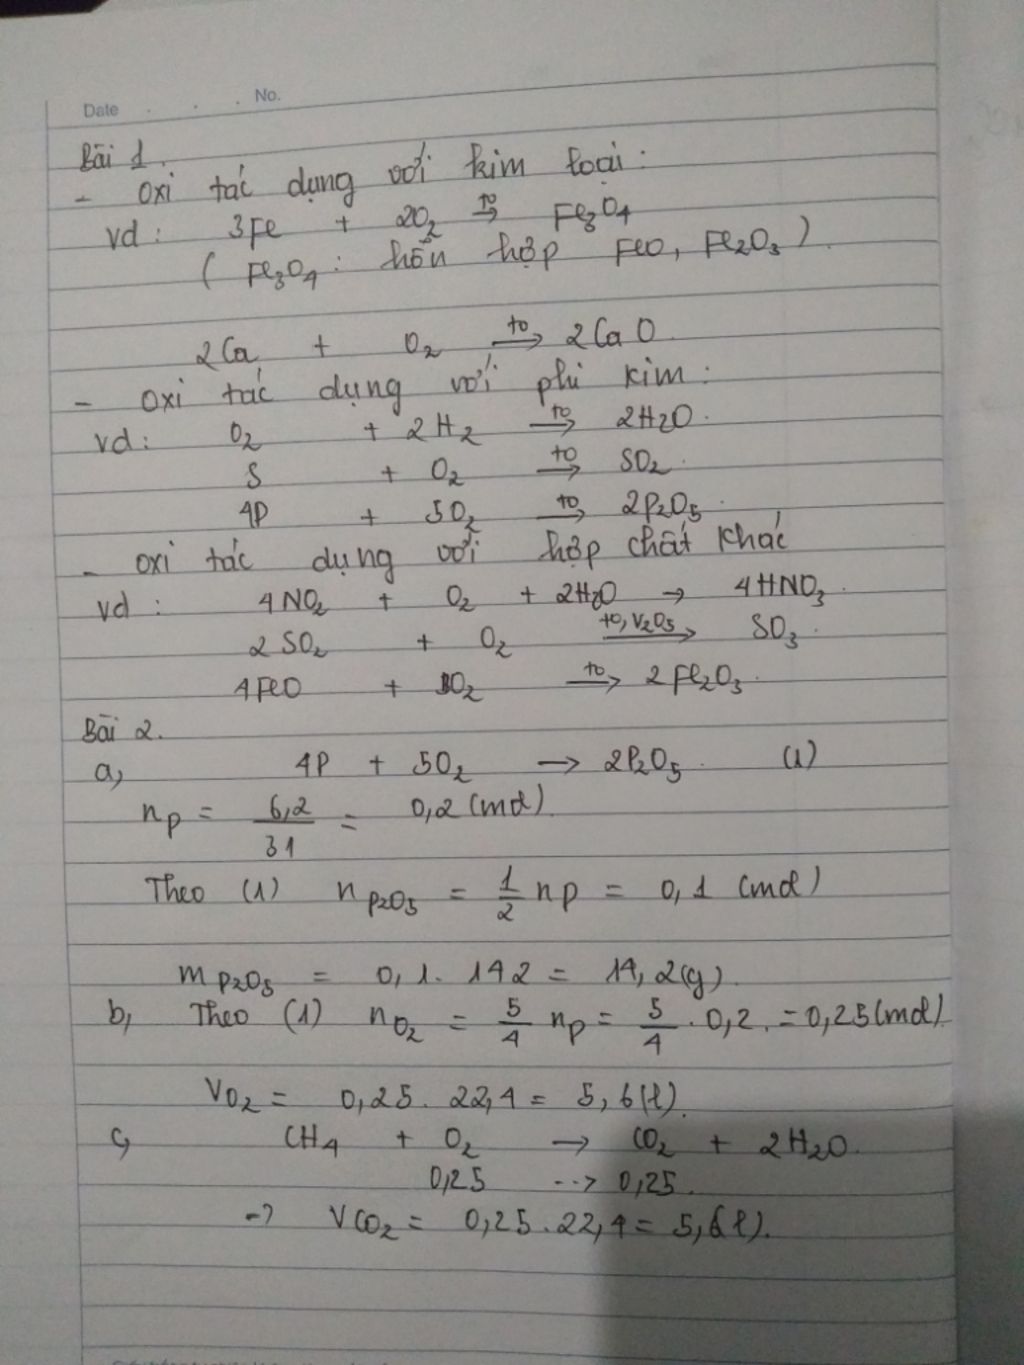 Date . . . No.
Bài 1.
- Oxi tác dụng với kim loại :
vd : 3Fe + 2O₂ t⁰→ Fe₃O₄
( Fe₃O₄ : hỗn hợp FeO, Fe₂O₃ ).
2Ca + O₂ t⁰→ 2CaO.
- Oxi tác dụng với phi kim :
vd : O₂ + 2H₂ t⁰→ 2H₂O.
S + O₂ t⁰→ SO₂.
4P + 5O₂ t⁰→ 2P₂O₅.
- Oxi tác dụng với hợp chất khác
vd : 4NO₂ + O₂ + 2H₂O → 4HNO₃.
2SO₂ + O₂ t⁰, V₂O₅→ SO₃.
4FeO + O₂ t⁰→ 2Fe₂O₃.
Bài 2.
a, 4P + 5O₂ → 2P₂O₅. (1)
nP = 6,2/31 = 0,2 (mol).
Theo (1) nP₂O₅ = 1/2 nP = 0,1 (mol)
mP₂O₅ = 0,1 . 142 = 14,2(g).
b, Theo (1) nO₂ = 5/4 nP = 5/4 . 0,2. = 0,25(mol).
VO₂ = 0,25. 22,4 = 5,6(l).
c, CH₄ + O₂ → CO₂ + 2H₂O.
0,25 --> 0,25.
=> VCO₂ = 0,25 . 22,4 = 5,6(l).